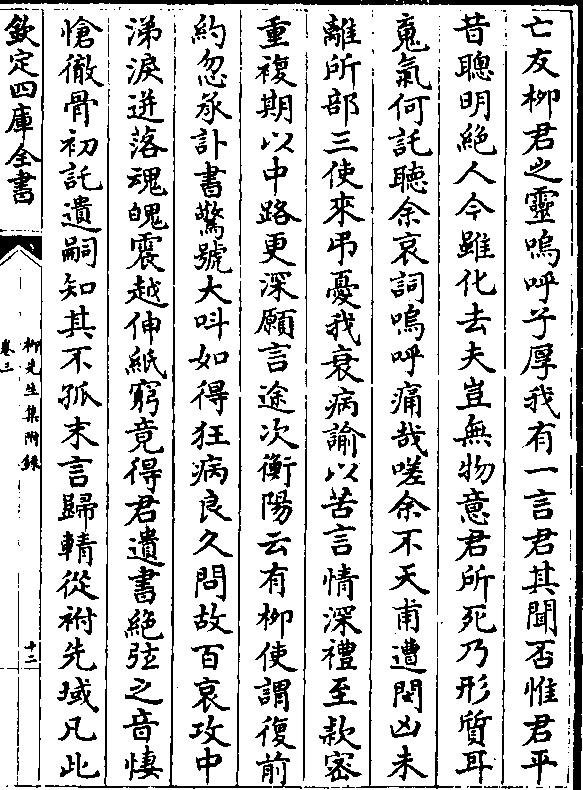 亡友柳君之靈嗚呼子厚我有一言君其聞否惟君平
昔聰明絶人今雖化去夫豈無物意君所死乃形質耳
䰟氣何託聽余哀詞嗚呼痛哉嗟余不天甫遭閔凶未
離所部三使來弔憂我衰病諭以苦言情深禮至款密
重複期以中路更深願言途次衡陽云有柳使謂復前
約忽承訃書驚號大叫如得狂病良久問故百哀攻中
涕淚迸落魂魄震越伸紙窮竟得君遺書絶弦之音悽
愴徹骨初託遺嗣知其不孤末言歸輤從祔先域凡此
欽定四庫全書
柳先生集附録
卷二
十二